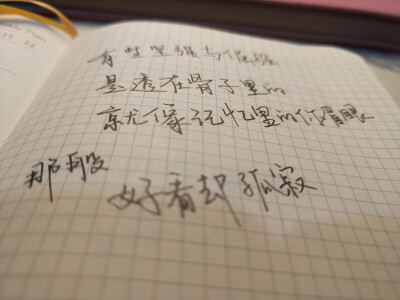 有些坚强与倔强
是透在骨子里的
就像记忆里的你眉眼
那般
好看却孤寂